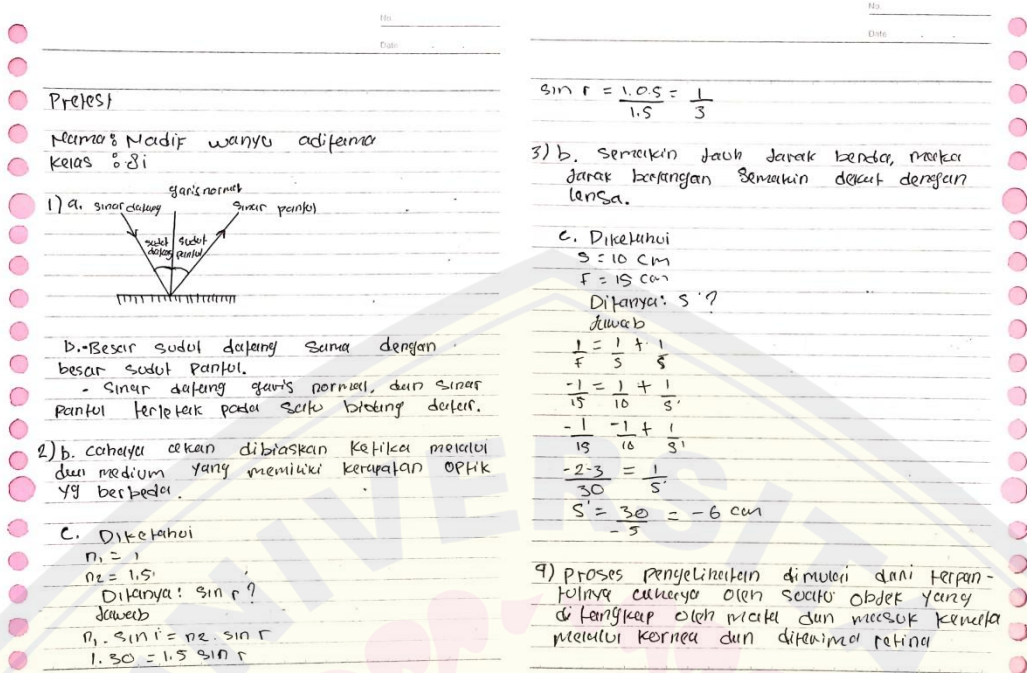 No.
Date
Pretest
Nama : Nadif wahyu aditama
Kelas : 8i
1) a. sinar datang garis normal sinar pantul
sudut datang sudut pantul
b. - Besar sudut datang sama dengan
besar sudut pantul.
- Sinar datang garis normal, dan sinar
pantul terletak pada satu bidang datar.
2) b. cahaya akan dibiaskan ketika melalui
dua medium yang memiliki kerapatan optik
yg berbeda.
c. Diketahui
n₁ = 1
n₂ = 1.5
Ditanya : sin r ?
Jawab
n₁ . sin i = n₂ . sin r
1. 30 = 1.5 sin r
No.
Date
sin r = 1.0.5 / 1.5 = 1/3
3) b. Semakin jauh jarak benda, maka
jarak bayangan semakin dekat dengan
lensa.
c. Diketahui
S = 10 cm
F = 15 cm
Ditanya : S' ?
Jawab
1/F = 1/S + 1/S
-1/15 = 1/10 + 1/S'
-1/15 -1/10 + 1/S'
-2-3/30 = 1/S'
S' = 30/-5 = -6 cm
4) Proses penglihatan dimulai dari terpan-
tulnya cahaya oleh suatu objek yang
ditangkap oleh mata dan masuk kemata
melalui kornea dan diterima retina
UNIVERSIT